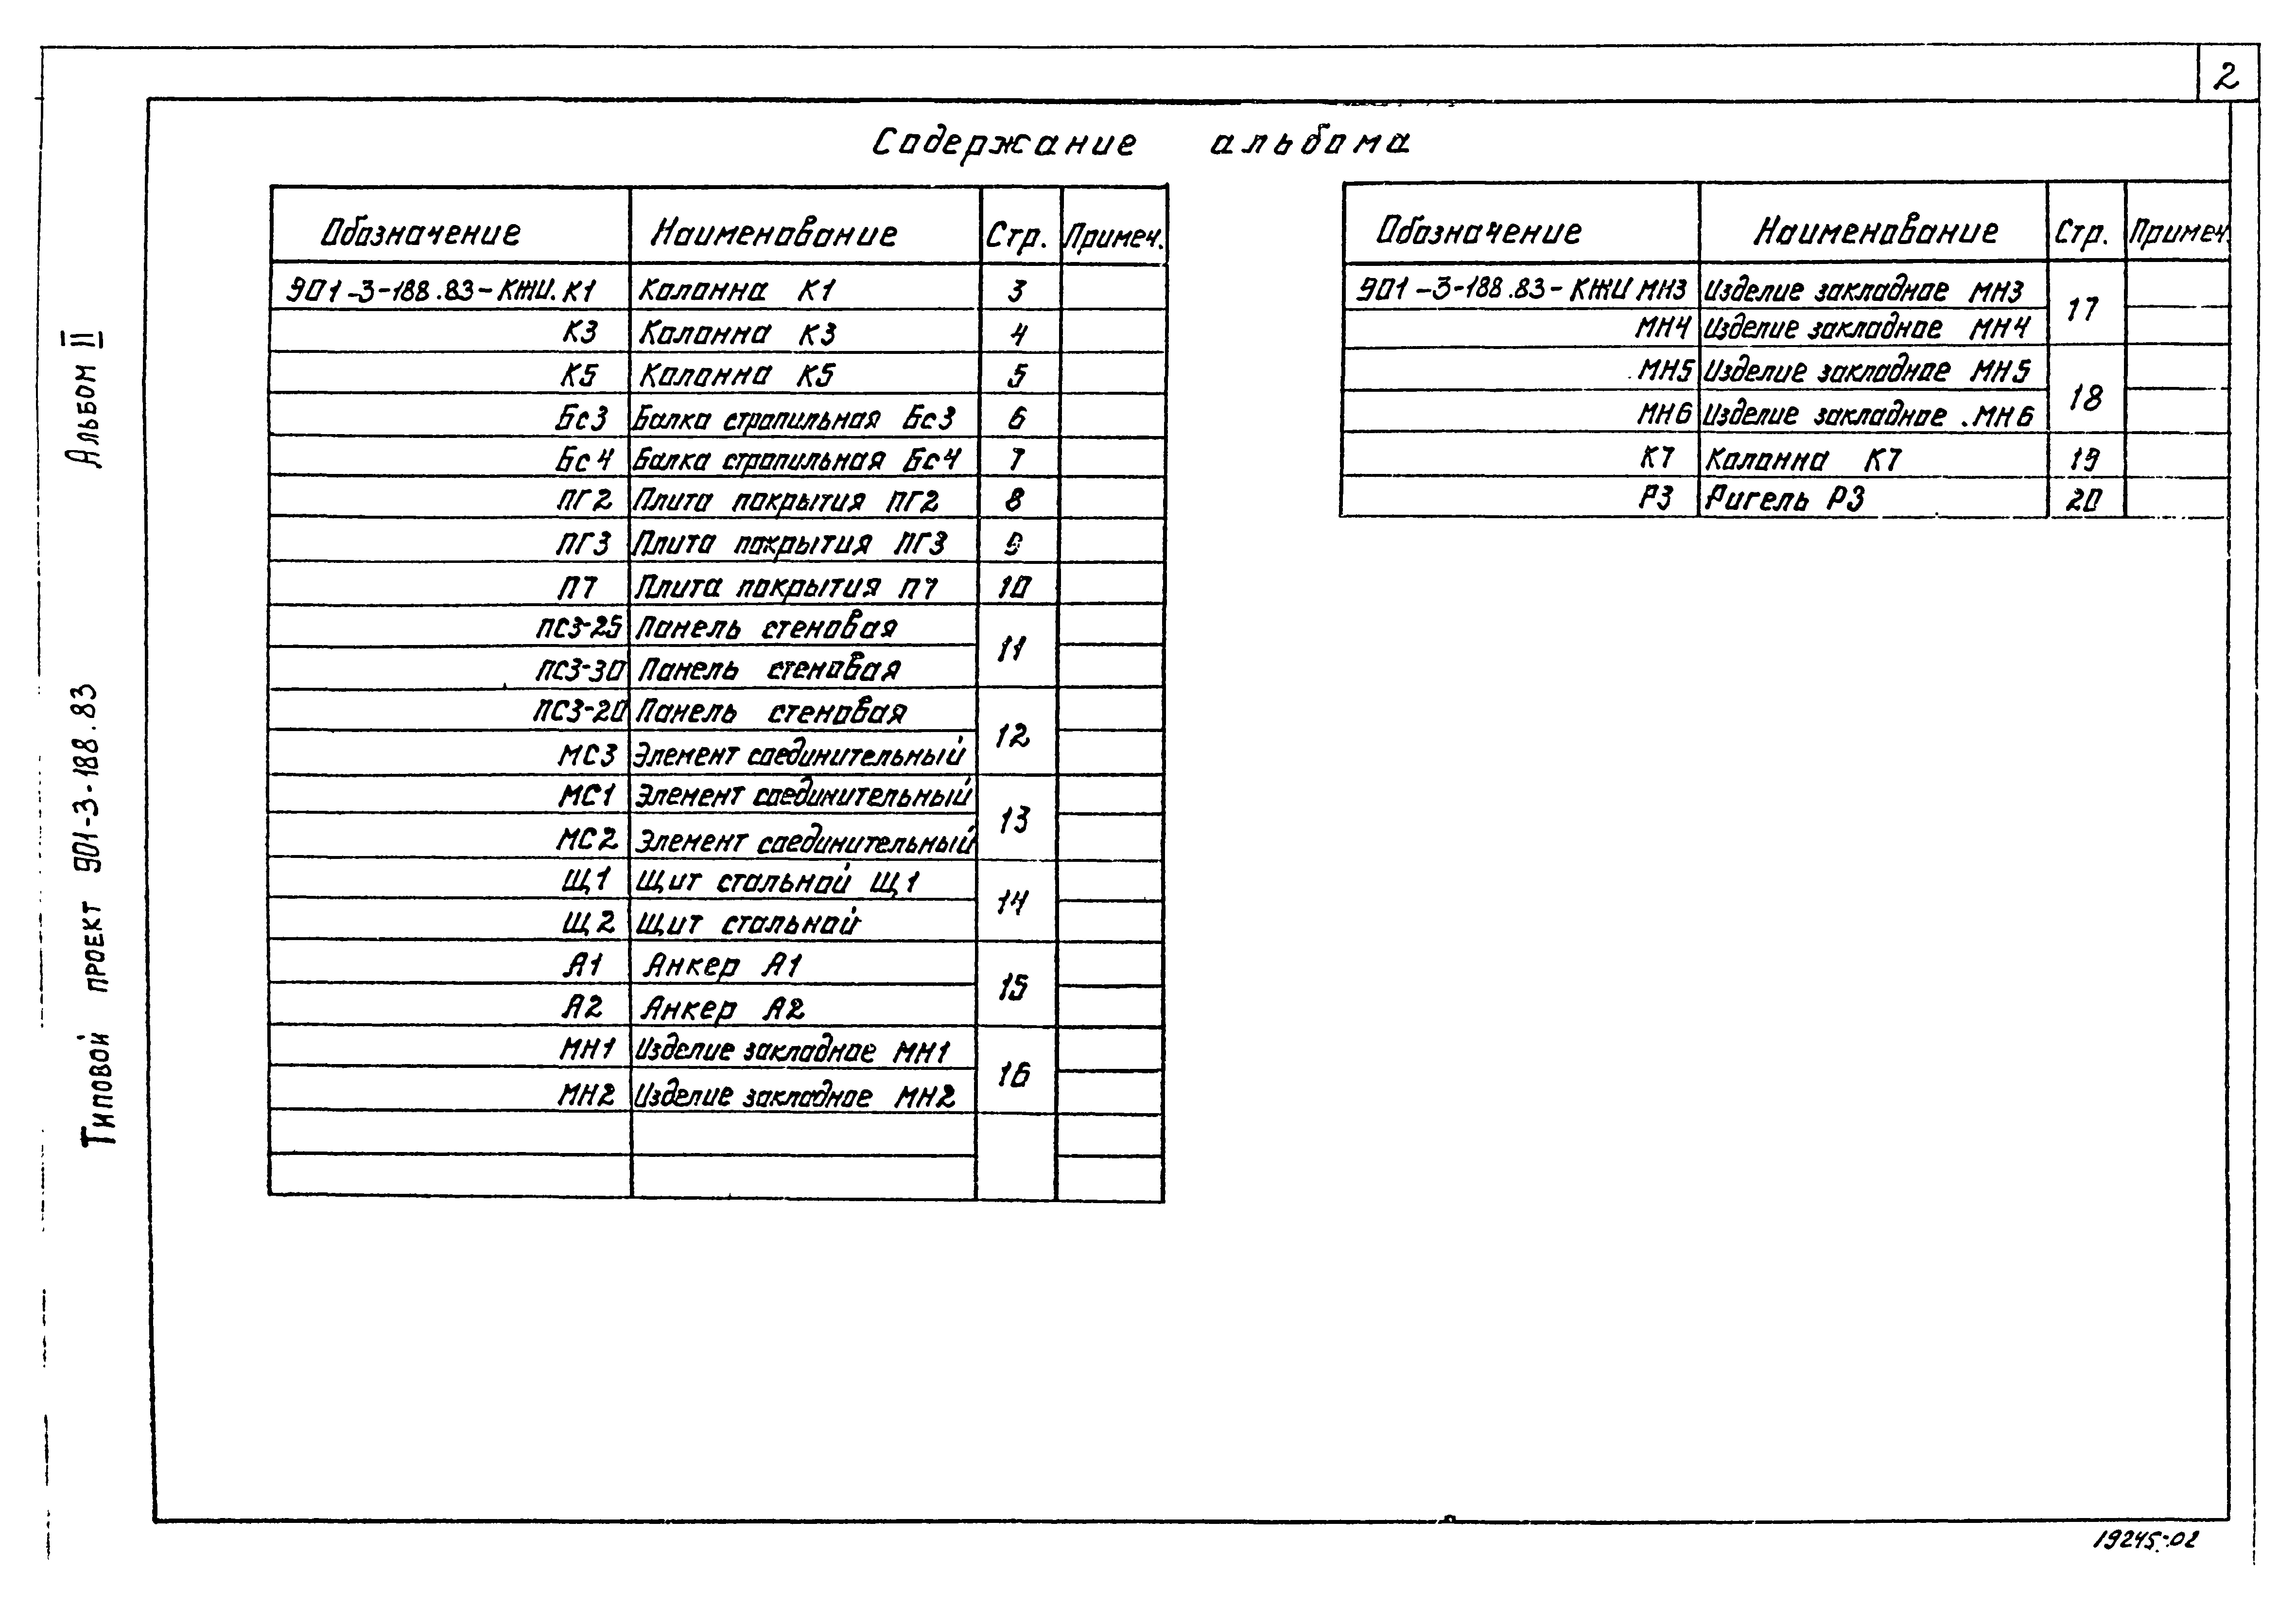 2
Содержание альбома
Обозначение Наименование Стр. Примеч.
901-3-188.83-КЖИ.К1 Колонна К1 3
К3 Колонна К3 4
К5 Колонна К5 5
Бс3 Балка стропильная Бс3 6
Бс4 Балка стропильная Бс4 7
ПГ2 Плита покрытия ПГ2 8
ПГ3 Плита покрытия ПГ3 9
П7 Плита покрытия П7 10
ПС3-25 Панель стеновая 11
ПС3-30 Панель стеновая
ПС3-20 Панель стеновая 12
МС3 Элемент соединительный
МС1 Элемент соединительный 13
МС2 Элемент соединительный
Щ1 Щит стальной Щ1 14
Щ2 Щит стальной
А1 Анкер А1 15
А2 Анкер А2
МН1 Изделие закладное МН1 16
МН2 Изделие закладное МН2
Обозначение Наименование Стр. Примеч.
901-3-188.83-КЖИ МН3 Изделие закладное МН3 17
МН4 Изделие закладное МН4
МН5 Изделие закладное МН5 18
МН6 Изделие закладное МН6
К7 Колонна К7 19
Р3 Ригель Р3 20
Альбом II
Типовой проект 901-3-188.83
19245-02